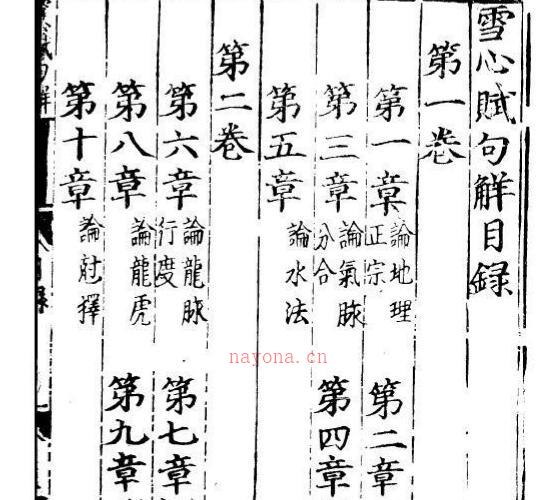 雪心賦句觧目録
第一巻
第一章 論地理正宗 第二章
第三章 論氣脉分合 第四章
第五章 論水法
第二巻
第六章 論龍脉行度 第七章
第八章 論龍虎 第九章
第十章 論尅擇
nayona.cn